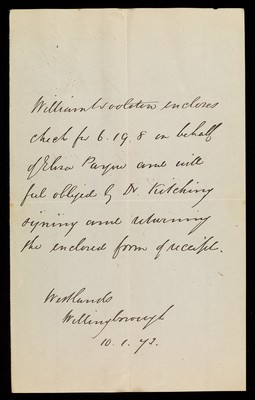 William Woolston encloses
check for 6.19.8 on behalf
of Eliza Payne and will
feel obliged by Dr Kitching
signing and returning
the enclosed form of receipt.
Westlands
Wellingborough
10.1.73.